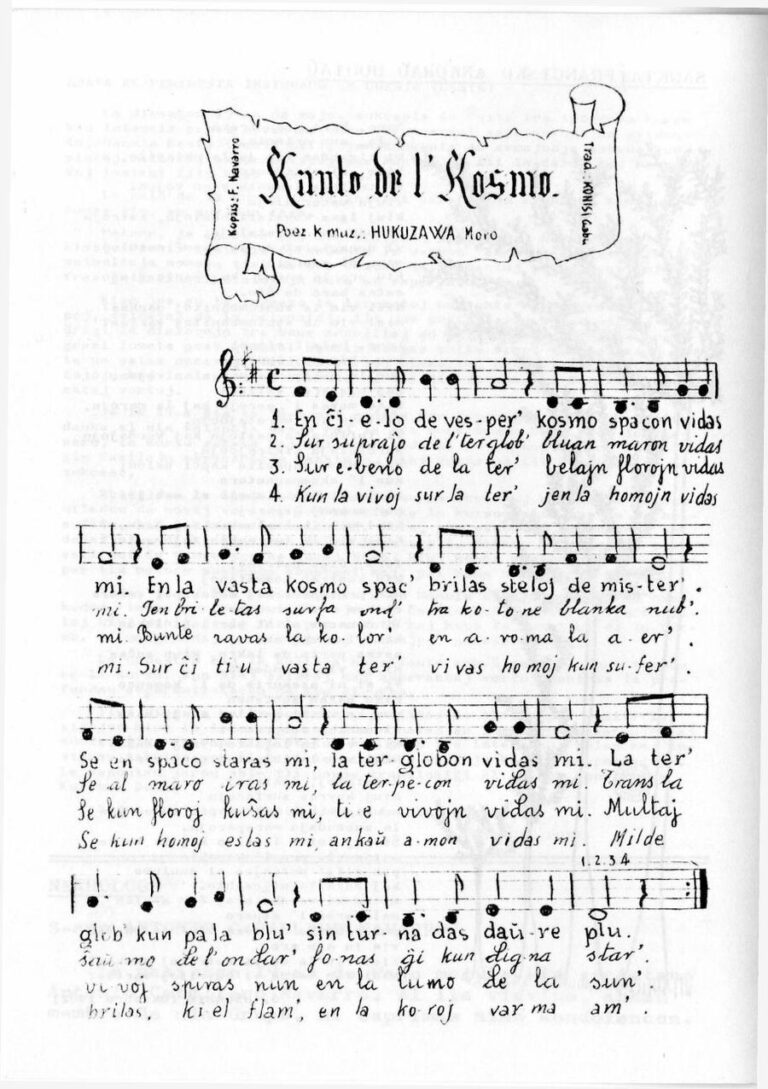 Kopiis: F. Navarro
Kanto de l' Kosmo.
Poez. k muz.: HUKUZAWA Moro
Trad.: KONISI Gaku
1. En ĉi-e-lo de ves-per' kosmo spacon vidas
2. Sur suprajo de l' terglob' bluan maron vidas
3. Sur e-beno de la ter' belajn florojn vidas
4. Kun la vivoj sur la ter' jen la homojn vidas
mi. En la vasta kosmo spac' brilas steloj de mis-ter'.
mi. Jen bri-le-tas surfa ond' tra ko-to-ne blanka nub'.
mi. Bunte ravas la ko-lor' en a-ro-ma la a-er'.
mi. Sur ĉi ti u vasta ter' vi vas ho moj kun su-fer'.
Se en spaco staras mi, la ter-globon vidas mi. La ter'
Se al maro iras mi, la ter-pe-con vidas mi. Trans la
Se kun floroj kuŝas mi, ti-e vivojn vidas mi. Multaj
Se kun homoj estas mi, ankaŭ a-mon vidas mi. Milde
1.2.3.4
glob' kun pa la blu' sin tur-na das daŭ-re plu.
ŝaŭ-mo de l' ondar' fo-nas ĝi kun dig-na star'.
vi voj spiras nun en la lumo de la sun'.
brilas, ki el flam', en la ko roj var ma am'.